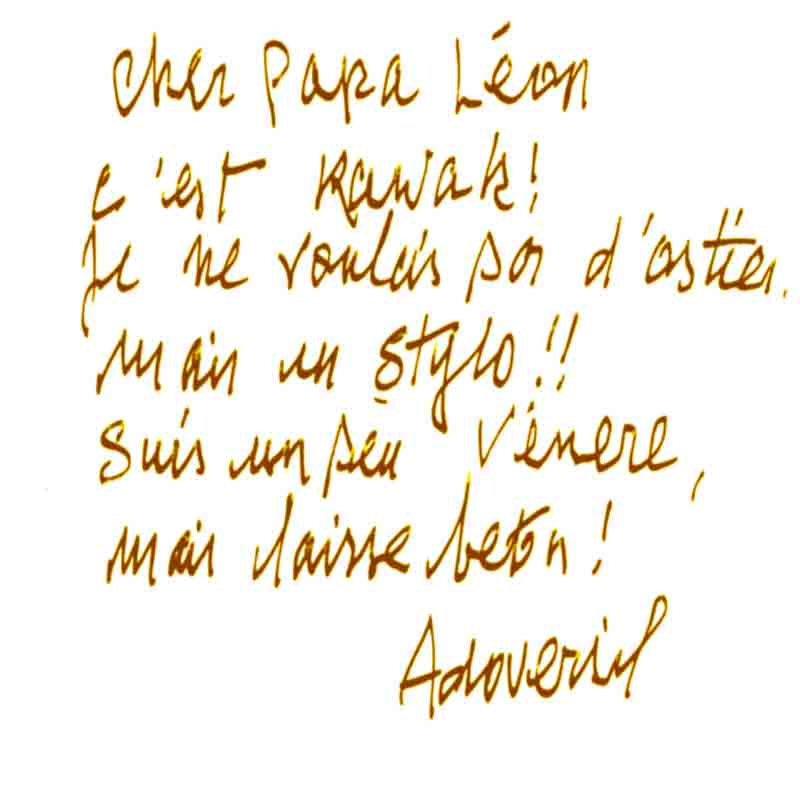 cher Papa Léon
c'est Kawak!
Je ne voulais pas d'astier.
mais un stylo!!
suis un peu Vénere,
mais laisse beton!